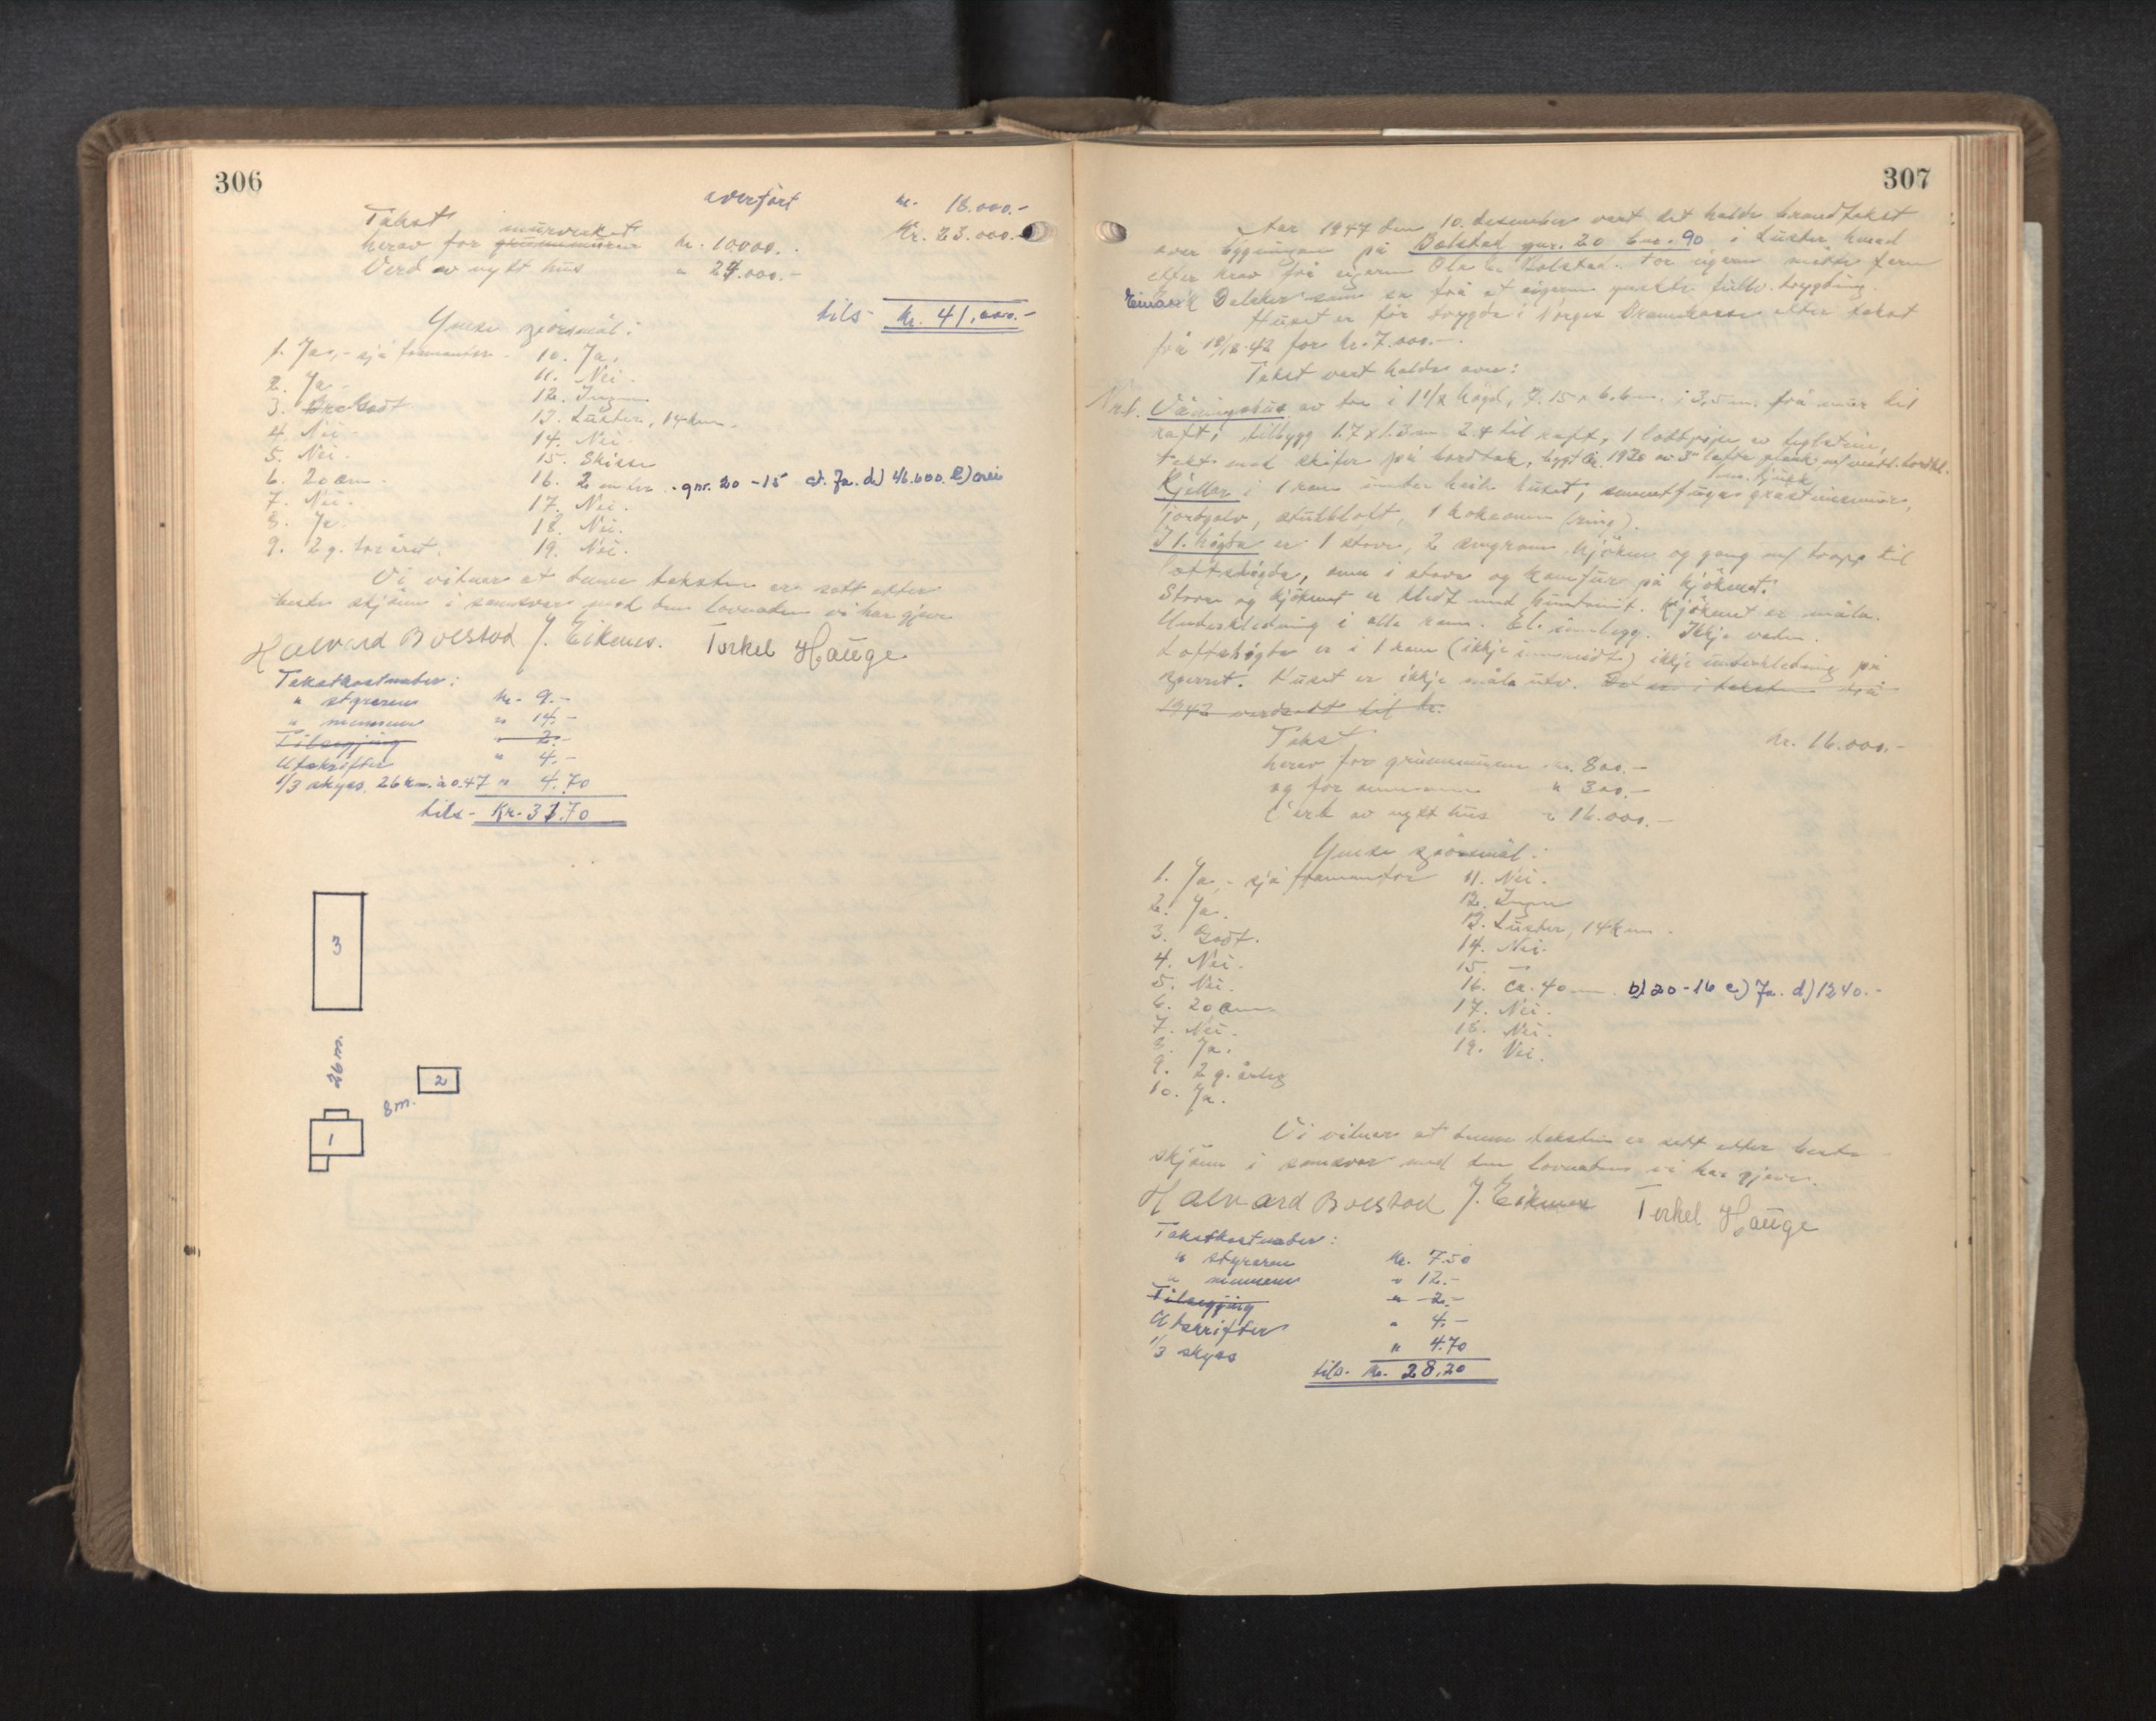 306
overført kr. 18.000.-
Takst Kr. 23.000.-
murverket
herav for grunnmuren kr. 10000.-
Verd av nytt hus " 24.000.-
tils- kr. 41.000.-
Ymse spörsmål:
1. Ja,- sjå framanfor.
2. Ja.
3. Bra Godt
4. Nei.
5. Nei.
6. 20 cm.
7. Nei.
8. Ja.
9. 2 g. for året.
10. Ja.
11. Nei.
12. Ingen
13. Luster, 14 km.
14. Nei.
15. Skisse
16. gnr. 20-15 c). Ja. d) 46.600. e) nei
17. Nei.
18. Nei.
19. Nei.
Vi vitner at denne taksten er sett etter
beste skjönn i samsvar med den lovnaden vi har gjeve
Halvard Bolstad J. Eikenes. Torkel Hauge
Takstkostnader:
" styraren kr. 9.-
" mennene " 14.-
Tilsegjing " 2.-
Utskrifter " 4.-
1/3 skyss, 26 km. à 0.47 " 4.70
tils- Kr. 31.70
3
26 m.
2
8 m.
1
307
År 1947 den 10. desember vart det halde brandtakst
over bygningen på Bolstad gnr. 20 bnr. 90 i Luster herad
etter krav frå eigaren Ola Bolstad. For eigaren møtte
Einar Dalsker som sa frå at eigaren ynskte full trygding.
Huset er för trygda i Norges Brannkasse etter takst
frå 18/12-42 for kr. 7.000.-.
Takst vart halde over:
Nr. 1. Våningshus av tre i 1 1/2 högd, 7.15 x 6.6 m. i 3.5 m. frå mur til
raft, tilbygg 1.7 x 1.3 m 2.4 til raft, 1 loddpipe av teglstein,
tekt med skifer på bordtak, bygt år 1920 av 3" plank
Kjellar i 1 rom under heile huset, sementfuga gråsteinsmur,
jordgolv, stubbloft, 1 kokeomn (ring).
I 1. högda er 1 stove, 2 sengrom, kjöken og gang m/ trapp til
loftshögda, omn i stova og komfur på kjökenet.
Stova og kjökenet er kledt med huntonit. Kjökenet er måla.
Underkledning i alle rom. El. innlegg. Ikkje vatn.
Loftshögda er i 1 rom (ikkje innreidt) ikkje underkledning på
sperret. Huset er ikkje måla utv. Det er i taksten frå
1942 verdsatt til kr.
Takst kr. 16.000.-
herav for grunnmuren kr. 800.-
og for omnane " 300.-
Verd av nytt hus " 16.000.-
Ymse spörsmål:
1. Ja,- sjå framanfor
2. Ja.
3. Godt.
4. Nei.
5. Nei.
6. 20 cm
7. Nei.
8. Ja.
9. 2 g. årleg
10. Ja.
11. Nei.
12. Ingen
13. Luster, 14 km.
14. Nei.
15. -
16. ca. 40 m b) 20-16 c) Ja. d) 1240.-
17. Nei.
18. Nei.
19. Nei.
Vi vitner at denne taksten er sett etter beste
skjönn i samsvar med den lovnaden vi har gjeve.
Halvard Bolstad J. Eikenes Torkel Hauge
Takstkostnader:
" styraren kr. 7.50
" mennene " 12.-
Tilsegjing " 2.-
Utskrifter " 4.-
1/3 skyss " 4.70
tils- kr. 28.20